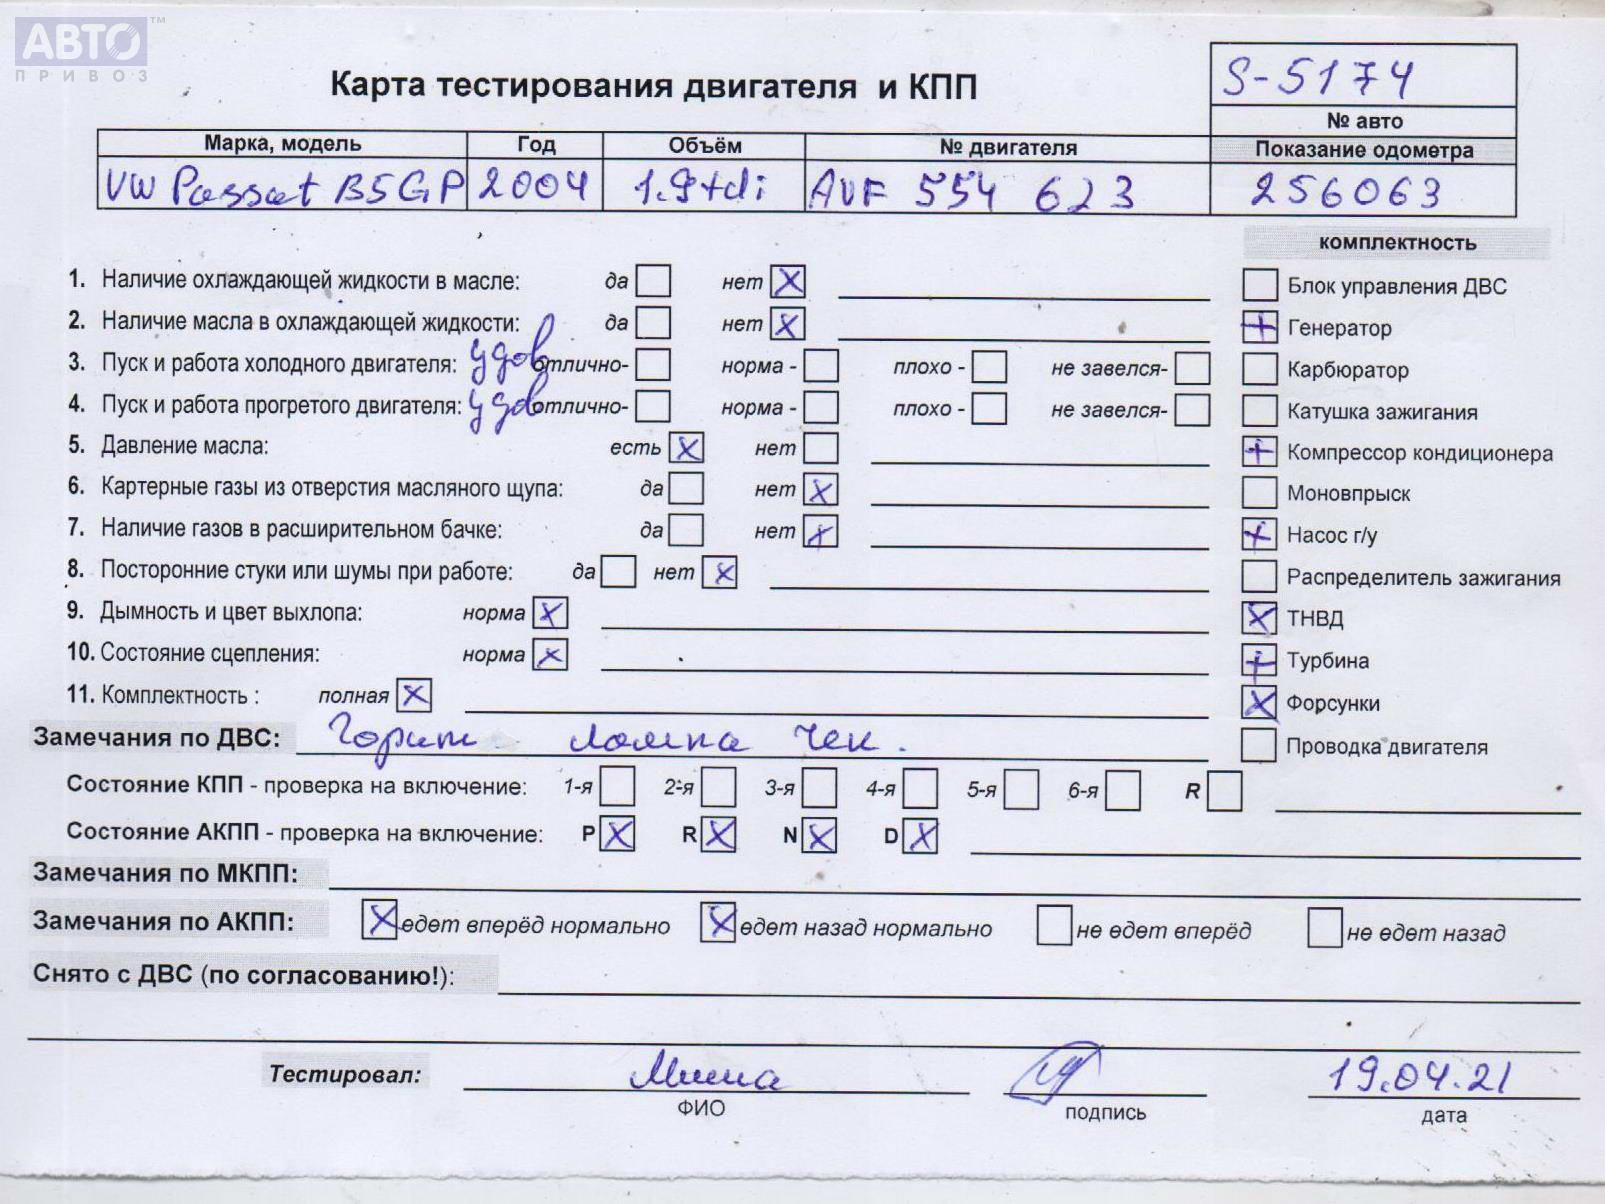 АВТО™
ПРИВОЗ
Карта тестирования двигателя и КПП
S-5174
№ авто
Марка, модель Год Объём № двигателя Показание одометра
VW Passat B5GP 2004 1.9tdi AVF 554 623 256063
комплектность
1. Наличие охлаждающей жидкости в масле: да нет X
Блок управления ДВС
2. Наличие масла в охлаждающей жидкости: да нет X
+ Генератор
3. Пуск и работа холодного двигателя: удов отлично- норма - плохо - не завелся-
Карбюратор
4. Пуск и работа прогретого двигателя: удов отлично- норма - плохо - не завелся-
Катушка зажигания
5. Давление масла: есть X нет
+ Компрессор кондиционера
6. Картерные газы из отверстия масляного щупа: да нет X
Моновпрыск
7. Наличие газов в расширительном бачке: да нет X
+ Насос г/у
8. Посторонние стуки или шумы при работе: да нет X
Распределитель зажигания
9. Дымность и цвет выхлопа: норма X
X ТНВД
10. Состояние сцепления: норма X
+ Турбина
11. Комплектность : полная X
X Форсунки
Замечания по ДВС: Горит лампа чек.
Проводка двигателя
Состояние КПП - проверка на включение: 1-я 2-я 3-я 4-я 5-я 6-я R
Состояние АКПП - проверка на включение: P X R X N X D X
Замечания по МКПП:
Замечания по АКПП: X едет вперёд нормально X едет назад нормально не едет вперёд не едет назад
Снято с ДВС (по согласованию!):
Тестировал: Миша 19.04.21
ФИО подпись дата